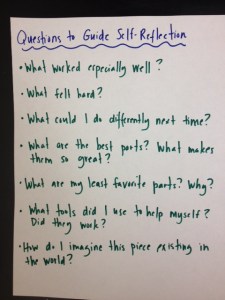 Questions to Guide Self-Reflection
• What worked especially well?
• What felt hard?
• What could I do differently next time?
• What are the best parts? What makes
them so great?
• What are my least favorite parts? Why?
• What tools did I use to help myself?
Did they work?
• How do I imagine this piece existing in
the world?